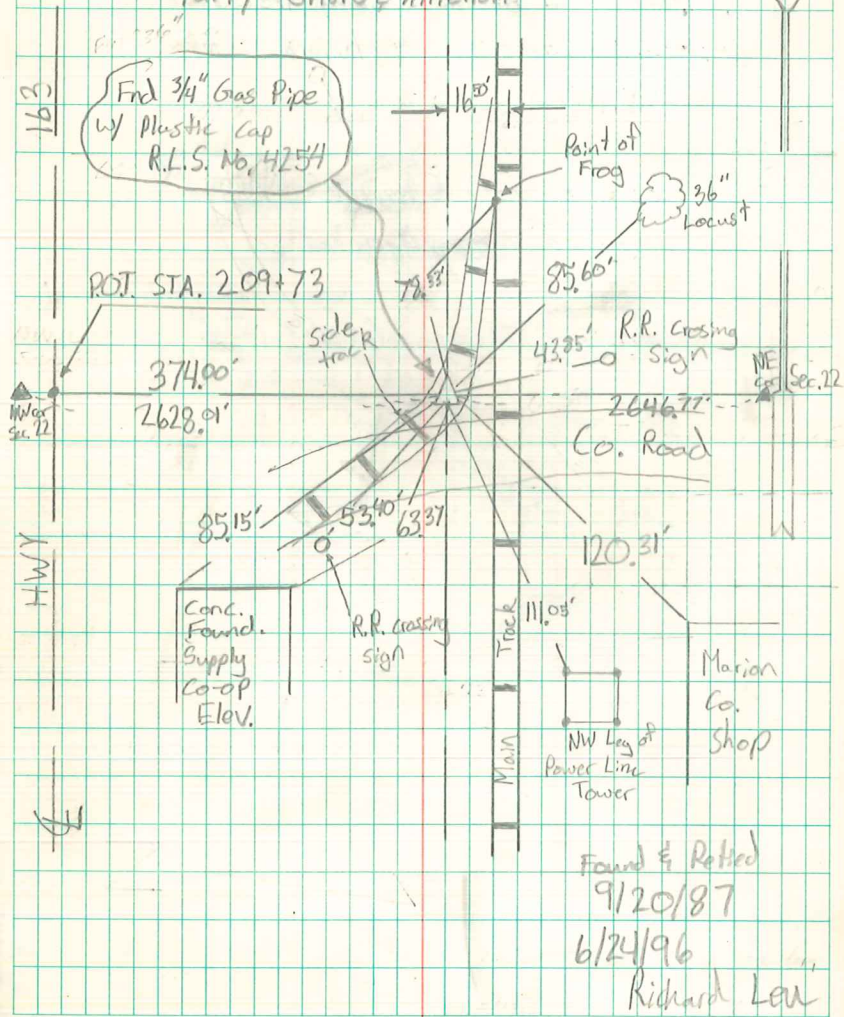 163
Fnd 3/4" Gas Pipe
w/ Plastic Cap
R.L.S. No. 4254
16.50'
Point of
Frog
36"
Locust
P.O.T. STA. 209+73
78.33'
85.60'
side
track
43.85'
R.R. crossing
Sign
374.00'
2628.01'
NW cor
Sec. 22
NE
Cor
Sec. 22
2646.77'
Co. Road
85.15'
53.40'
63.37
120.31'
HWY
Conc.
Found.
Supply
Co-op
Elev.
R.R. crossing
sign
111.05'
Main Track
NW Leg of
Power Line
Tower
Marion
Co.
Shop
Found & Retied
9/20/87
6/24/96
Richard